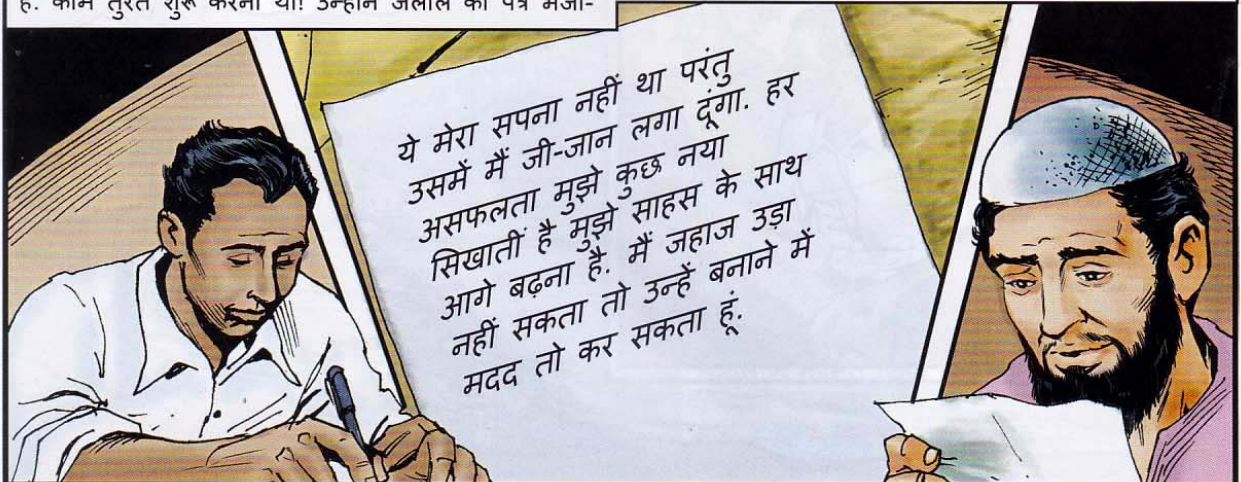 है. काम तुरंत शुरू करना था! उन्होंने जलाल को पत्र भेजा-
ये मेरा सपना नहीं था परंतु
उसमें मैं जी-जान लगा दूंगा. हर
असफलता मुझे कुछ नया
सिखातीं है मुझे साहस के साथ
आगे बढ़ना है. मैं जहाज उड़ा
नहीं सकता तो उन्हें बनाने में
मदद तो कर सकता हूं.